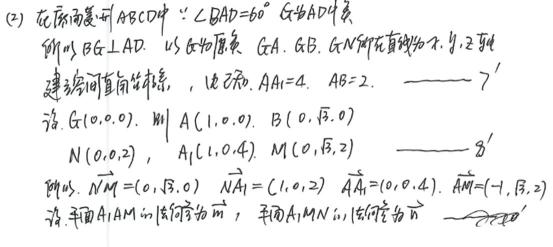 (2) 在底面菱形ABCD中 ∵∠BAD=60° G为AD中点
所以BG⊥AD. 以G为原点 GA、GB、GN所在直线为x,y,z轴
建立空间直角坐标系, 设 AA₁=4. AB=2. ——— 7′
设 G(0,0,0). 则 A(1,0,0). B(0,√3,0)
N(0,0,2), A₁(1,0,4). M(0,√3,2) ——— 8′
所以. NM→=(0,√3,0) NA₁→=(1,0,2) AA₁→=(0,0,4). AM→=(-1,√3,2)
设.平面A₁AM的法向量为m→, 平面A₁MN的法向量为n→